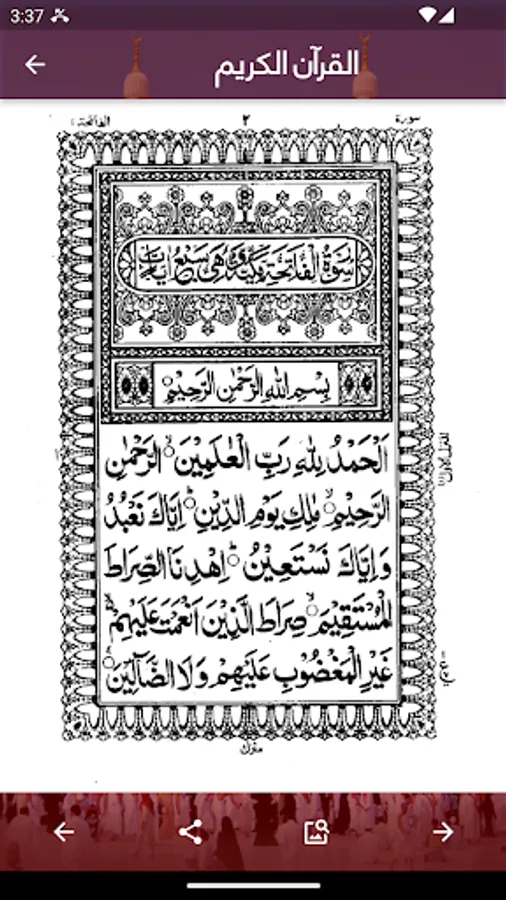 3:37
القرآن الكريم
سورة ٢ الفاتحة ١
سُوْرَةُ الْفَاتِحَةِ مَكِّيَّةٌ وَّهِيَ سَبْعُ اٰيَاتٍ
بِسْمِ اللهِ الرَّحْمٰنِ الرَّحِيْمِ
اَلْحَمْدُ لِلّٰهِ رَبِّ الْعٰلَمِيْنَ ۙ الرَّحْمٰنِ
الرَّحِيْمِ ۙ مٰلِكِ يَوْمِ الدِّيْنِ ۗ اِيَّاكَ نَعْبُدُ
وَاِيَّاكَ نَسْتَعِيْنُ ۗ اِهْدِنَا الصِّرَاطَ
الْمُسْتَقِيْمَ ۙ صِرَاطَ الَّذِيْنَ اَنْعَمْتَ عَلَيْهِمْ
غَيْرِ الْمَغْضُوْبِ عَلَيْهِمْ وَلَا الضَّآلِّيْنَ
منزل